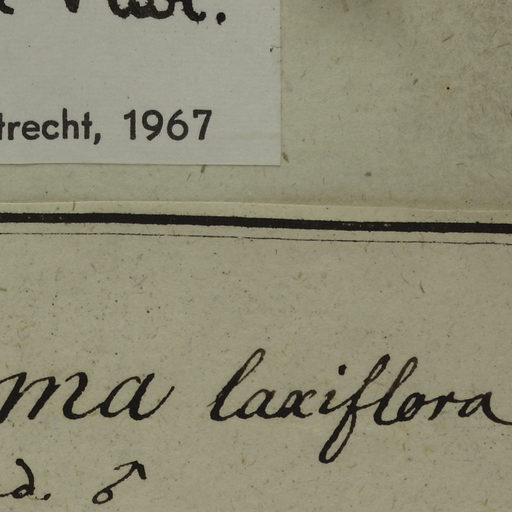 trecht, 1967
ma laxiflora
d. ♂